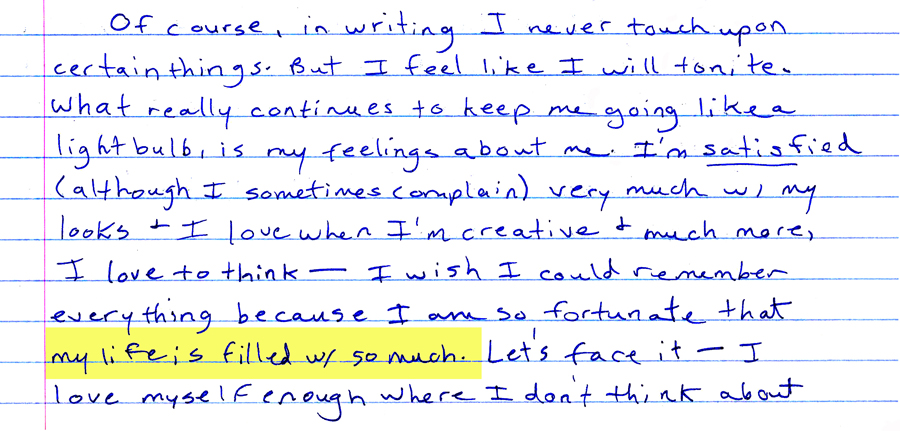 Of course, in writing I never touch upon
certain things. But I feel like I will tonite.
What really continues to keep me going like a
light bulb, is my feelings about me. I'm satisfied
(although I sometimes complain) very much w/ my
looks + I love when I'm creative + much more,
I love to think — I wish I could remember
everything because I am so fortunate that
my life is filled w/ so much. Let's face it — I
love myself enough where I don't think about